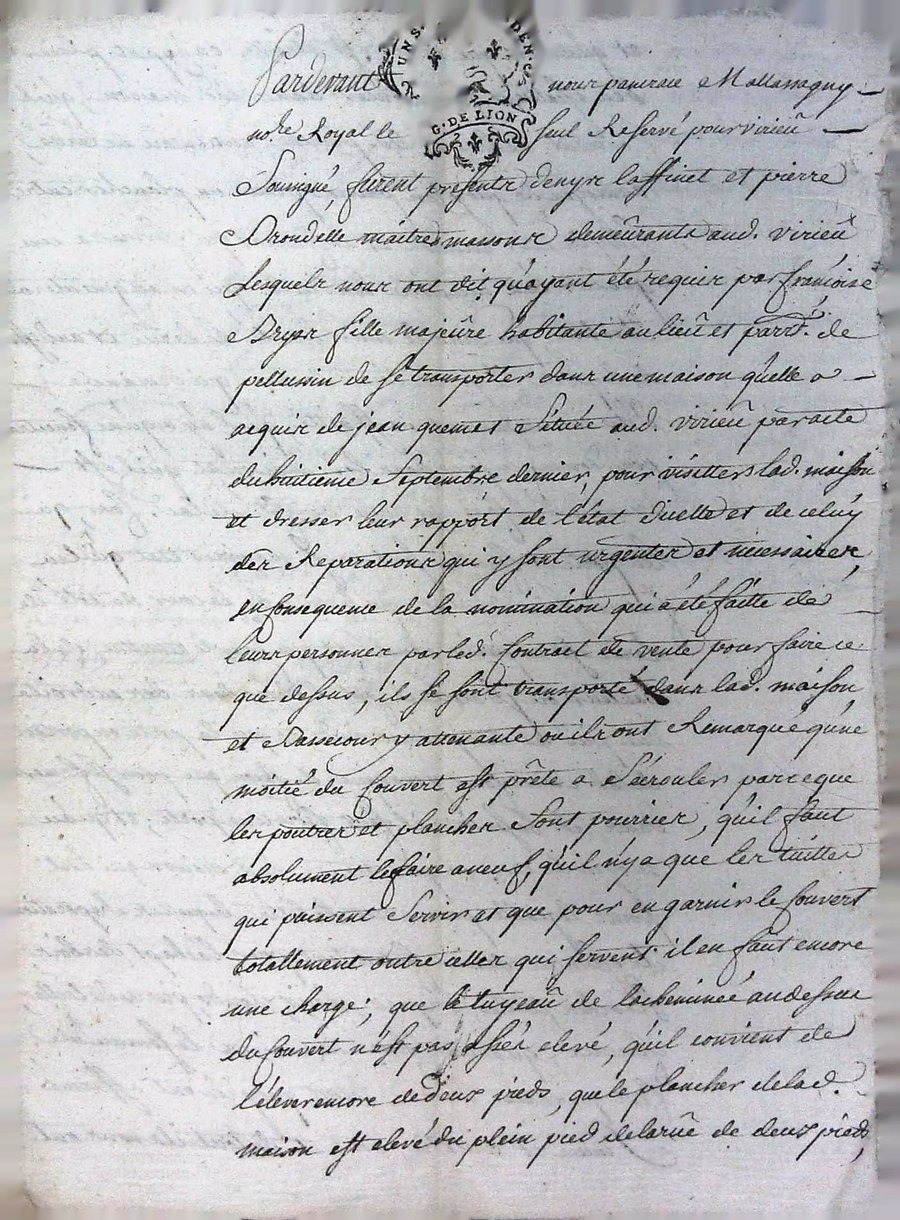 Pardevant nous pancrace Mallassagny
UN S. DEN. CS
G. DE LION
no.re Royal le seul Reservé pour virieû
Soussigné, furent presents denys Laffinet et pierre
Drondelle maitres massons demeûrants aud. virieû
Lesquels nous ont dit qu'ayant été requis par francoise
Bryas fille majeûre habitante au lieû et parrs. de
pellussin de se transporter dans une maison qu'elle a
acquis de jean quemet Située aud. virieû par acte
du huitieme Septembre dernier, pour visitter lad. maison
et dresser leur rapport de l'état d'icelle et de celuy
des Reparations qui y sont urgentes et necessaires,
en consequence de la nomination qui a été faitte de
leurs personnes par led. Contrait de vente pour faire ce
que dessus, ils se sont transporté dans lad. maison
et Bassecour y attenante ou ils ont Remarque qu'une
moitié du Couvert est prête a S'écrouler parceque
les poutres et plancher Sont pourries, qu'il faut
absolument le faire a neuf, qu'il n'y a que les tuilles
qui puissent Servir et que pour en garnir le Couvert
totallement outre celles qui servent il en faut encore
une charge; que le tuyeaû de la cheminée au dessus
du Couvert n'est pas assés elevé, qu'il convient de
l'élever encore de deux pieds, que le plancher de lad.
maison est elevé du plein pied de la rüe de deux pieds,